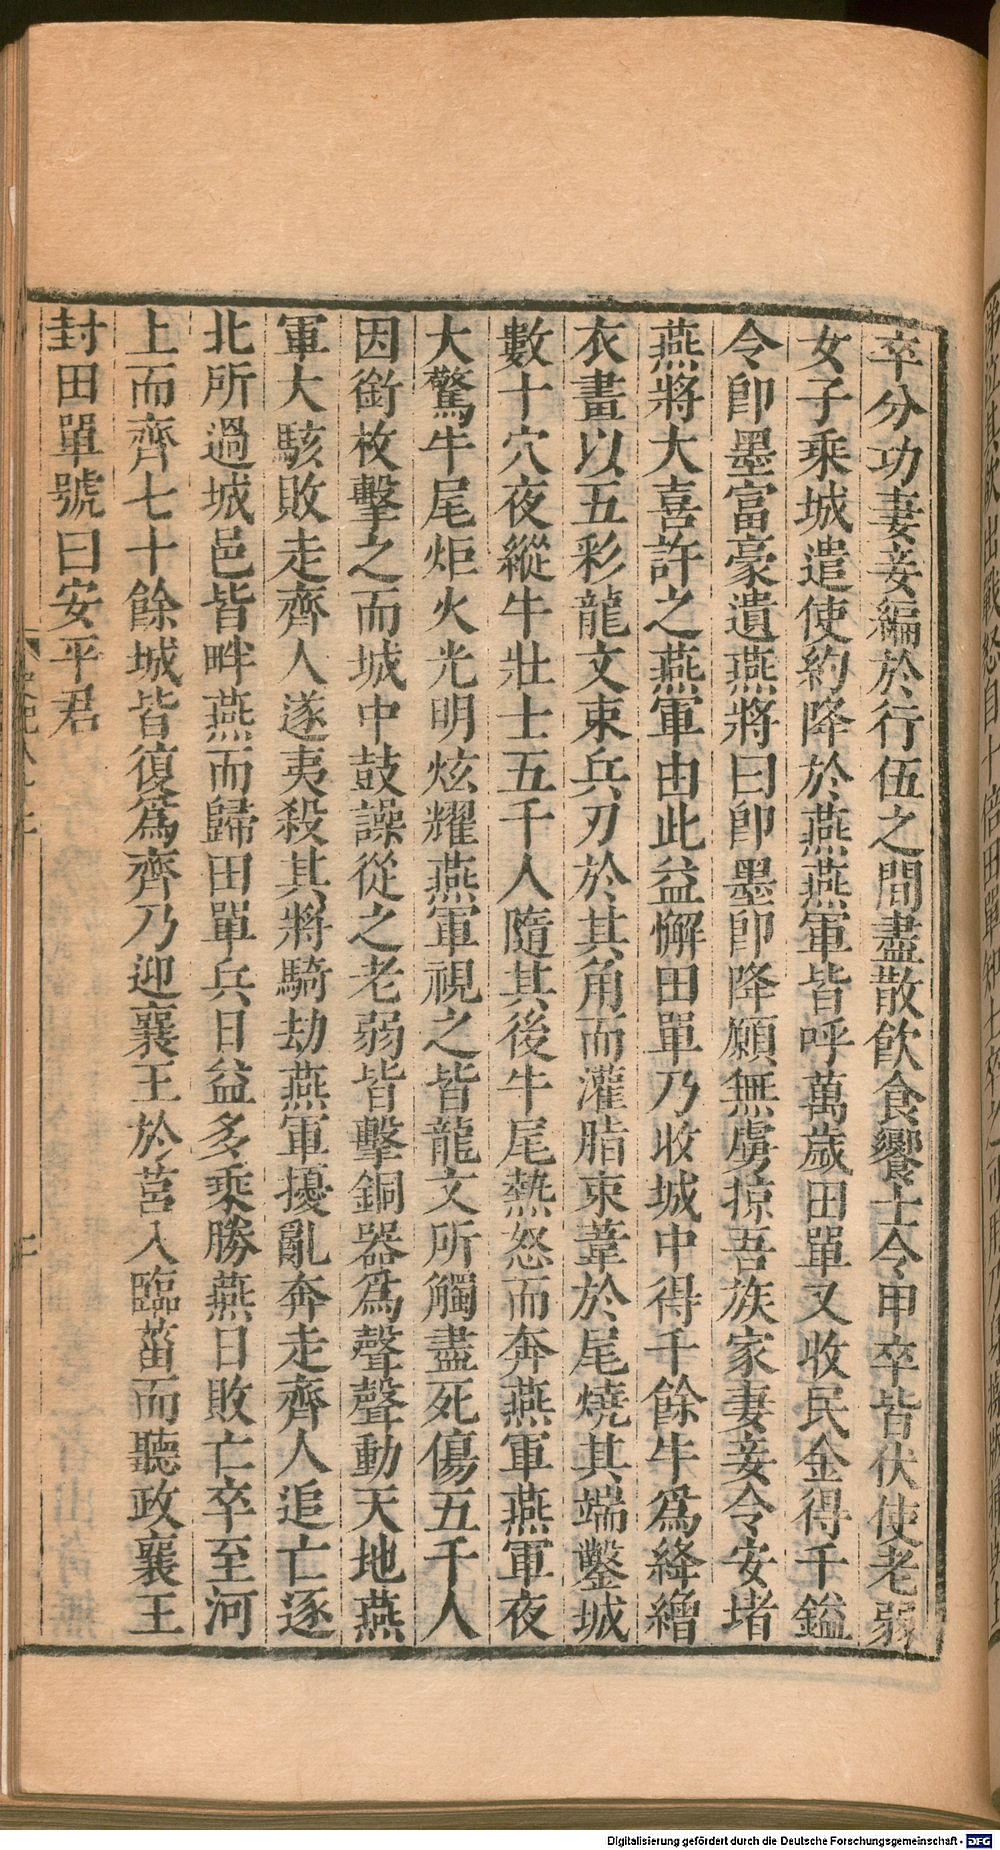 卒分功妻妾編於行伍之間盡散飲食饗士令甲卒皆伏使老弱
女子乘城遣使約降於燕燕軍皆呼萬歲田單又收民金得千鎰
令卽墨富豪遺燕將曰卽墨卽降願無虜掠吾族家妻妾令安堵
燕將大喜許之燕軍由此益懈田單乃收城中得千餘牛爲絳繒
衣畫以五彩龍文束兵刃於其角而灌脂束葦於尾燒其端鑿城
數十穴夜縱牛壯士五千人隨其後牛尾熱怒而奔燕軍燕軍夜
大驚牛尾炬火光明炫耀燕軍視之皆龍文所觸盡死傷五千人
因銜枚擊之而城中鼓譟從之老弱皆擊銅器爲聲聲動天地燕
軍大駭敗走齊人遂夷殺其將騎劫燕軍擾亂奔走齊人追亡逐
北所過城邑皆畔燕而歸田單兵日益多乘勝燕日敗亡卒至河
上而齊七十餘城皆復爲齊乃迎襄王於莒入臨菑而聽政襄王
封田單號曰安平君
Digitalisierung gefördert durch die Deutsche Forschungsgemeinschaft - DFG